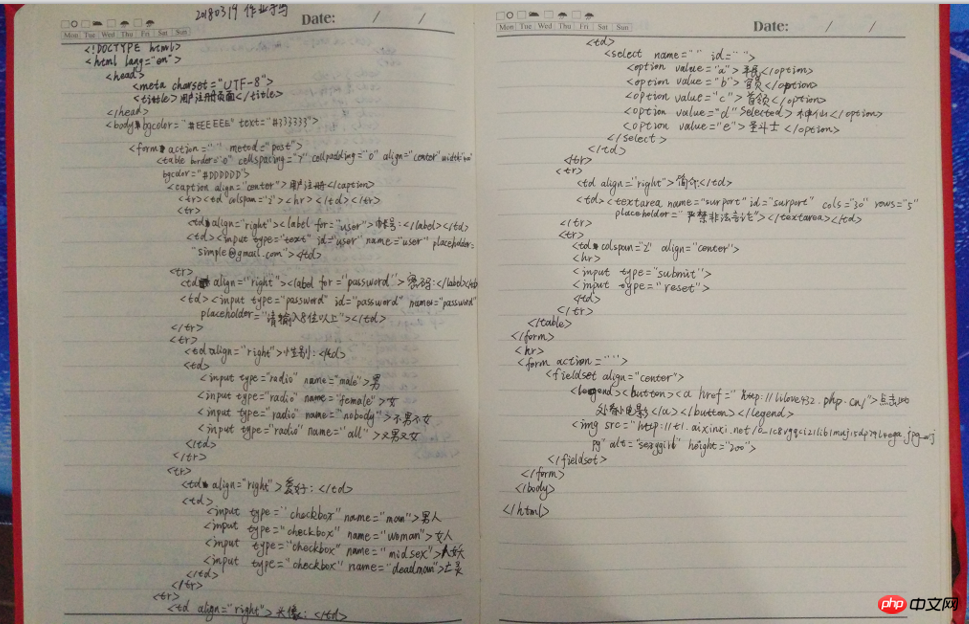 20180319 作业手写
Date: / /
Mon Tue Wed Thu Fri Sat Sun
<!DOCTYPE html>
<html lang="en">
<head>
<meta charset="UTF-8">
<tittle>用户注册页面</title>
</head>
<body bgcolor="#EEEEEE" text="#333333">
<form action="" metod="post">
<table border="0" cellspacing="7" cellpadding="0" align="center" width
bgcolor="#DDDDDD">
<caption align="center">用户注册</caption>
<tr><td colspan="2"><hr></td></tr>
<tr>
<td align="right"><label for="user">帐号:</label></td>
<td><input type="text" id="user" name="user" placeholder=
simple@gmail.com"></td>
<tr>
<td align="right"><label for="password">密码:</label>
<td><input type="password" id="password" name="password"
placeholder="请输入8位以上"></td>
</tr>
<tr>
<td align="right">性别:</td>
<td>
<input type="radio" name="male">男
<input type="radio" name="female">女
<input type="radio" name="nobody">不男不女
<input type="radio" name="all">又男又女
</td>
</tr>
<tr>
<td align="right">爱好:</td>
<td>
<input type="checkbox" name="man">男人
<input type="checkbox" name="woman">女人
<input type="checkbox" name="midsex">人妖
<input type="checkbox" name="deadman">
</td>
</tr>
<tr>
<td align="right">头像:</td>
Date: / /
Mon Tue Wed Thu Fri Sat Sun
<td>
<select name="" id="">
<option value="a">平民</option>
<option value="b">官员</option>
<option value="c">首领</option>
<option value="d" selected>神仙</option>
<option value="e">圣斗士</option>
</select>
</td>
</tr>
<tr>
<td align="right">简介</td>
<td><textarea name="surport" id="surport" cols="30" rows="5"
placeholder="严禁非法言论"></textarea></td>
</tr>
<tr>
<td colspan="2" align="center">
<hr>
<input type="submit">
<input type="reset">
</td>
</tr>
</table>
</form>
<hr>
<form action="">
<fieldset align="center">
<legend><button><a href="http://lilove432.php.cn/">点击此
处看小电影</a></button></legend>
<img src="http://t1.aixinxi.net/
alt="sexygirl" height="200">
</fieldset>
</form>
</body>
</html>
php 中文网